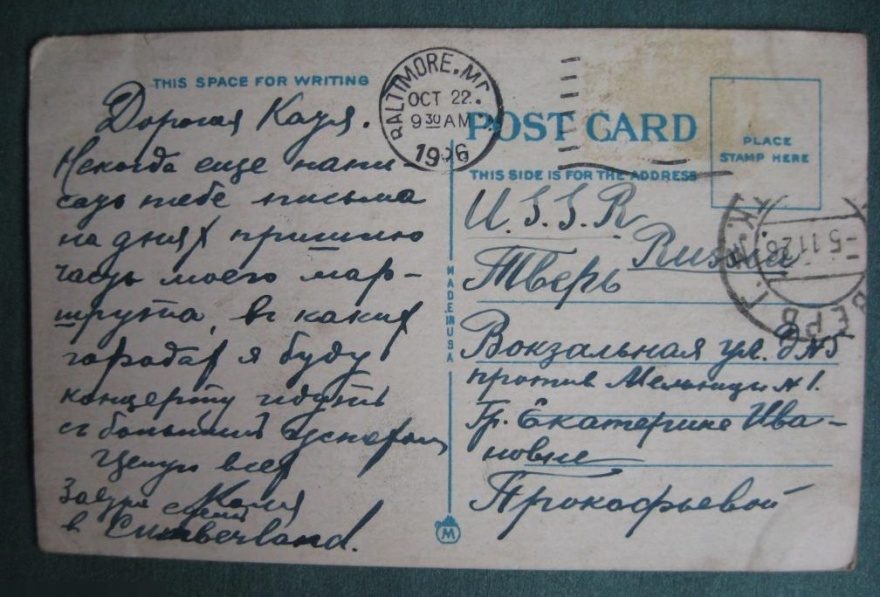 THIS SPACE FOR WRITING
Дорогая Катя.
Некогда еще напи-
сать тебе письма
на днях пришлю
часть моего мар-
шрута, въ каких
городах я буду
концерты идутъ
съ большим успехом
Целую всех
Завтра
в Cumberland.
BALTIMORE, MD.
OCT 22.
9 30 AM
1926
POST CARD
PLACE
STAMP HERE
THIS SIDE IS FOR THE ADDRESS
U.S.S.R
Russia
Тверь
Вокзальная ул. д №5
против Мельницы №1.
Гр. Екатерине Ива-
новне
Прокофьевой
MADE IN USA
M
-5.11.26